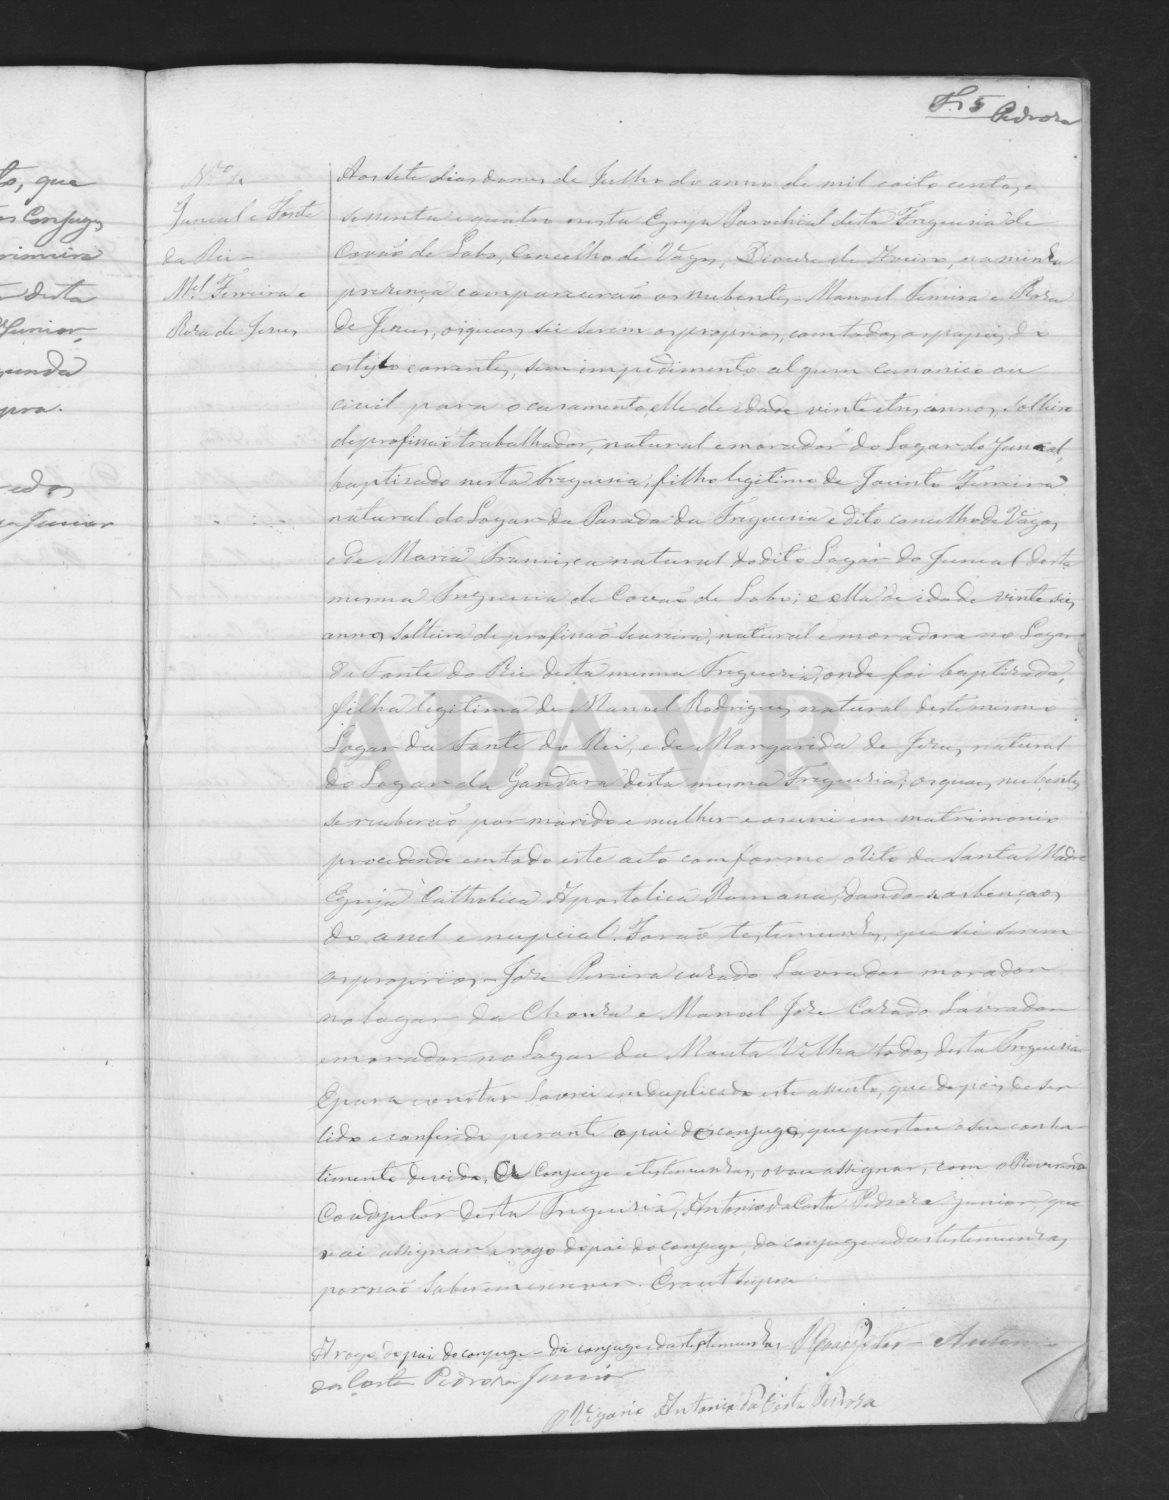 Fl 5 Pedroza
Nº
Juncal e Fonte
do Rei -
Mel Ferreira e
Roza de Jezus
Aos sete dias do mes de Julho do anno de mil oito centos e
sessenta e quatro nesta Egreja Parochial desta Freguesia de
Covaõ do Lobo, Concelho de Vagos, Diocese de Aveiro, na minha
prezença comparecerão os nubentes - Manoel Ferreira e Roza
de Jezus, os quaes sei serem os proprios, com todos os papeis do
estylo correntes, sem impedimento algum canonico ou
civil para o casamento, elle de idade vinte e tres annos, solteiro
de profissaõ trabalhador, natural e morador do Logar do Juncal,
baptisado nesta Freguesia, filho legitimo de Jacinto Ferreira
natural do Logar da Parada da Freguesia e dito concelho de Vagos,
e de Maria Francisca natural do dito Logar do Juncal desta
mesma Freguesia de Covaõ do Lobo; e ella de idade vinte seis
annos solteira de profissaõ seareira, natural e moradora no Logar
da Fonte do Rei desta mesma Freguesia, onde foi baptizada,
filha legitima de Manoel Rodrigues natural deste mesmo
Logar da Fonte do Rei, e de Margarida de Jezus, natural
do Logar da Gandara desta mesma Freguesia; os quaes nubentes
se receberaõ por marido e mulher e os uni em matrimonio
procedendo em todo este acto conforme o rito da Santa Madre
Egreja Catholica Apostolica Romana, dando as bençaos
do anel e nupcial. Foraõ testemunhas, que sei serem
os proprios - Joze Pereira cazado Lavrador morador
no Logar da Chouza e Manoel Joze Cazado Lavrador
e morador no Logar da Mouta Velha todos desta Freguesia
E para constar Lavrei em duplicado este assento, que depois de ser
lido e conferido perante o pai do conjuge, que prestou o seu consen
timento devido, a conjuge e testemunhas, o vou assignar, com o Reverendo
Coadjutor desta Freguesia, Antonio da Costa Pedroza Junior, que
vai assignar a rogo do pai do conjuge, da conjuge e das testemunhas,
por naõ saberem escrever. Era ut supra
A rogo do pai do conjuge - da conjuge e das testemunhas O Coadjutor Antonio
da Costa Pedroza Junior
O Vigario Antonio da Costa Pedroza
to, que
conjuges
primeira
desta
Junior,
segunda
supra.
Junior
ADAVR